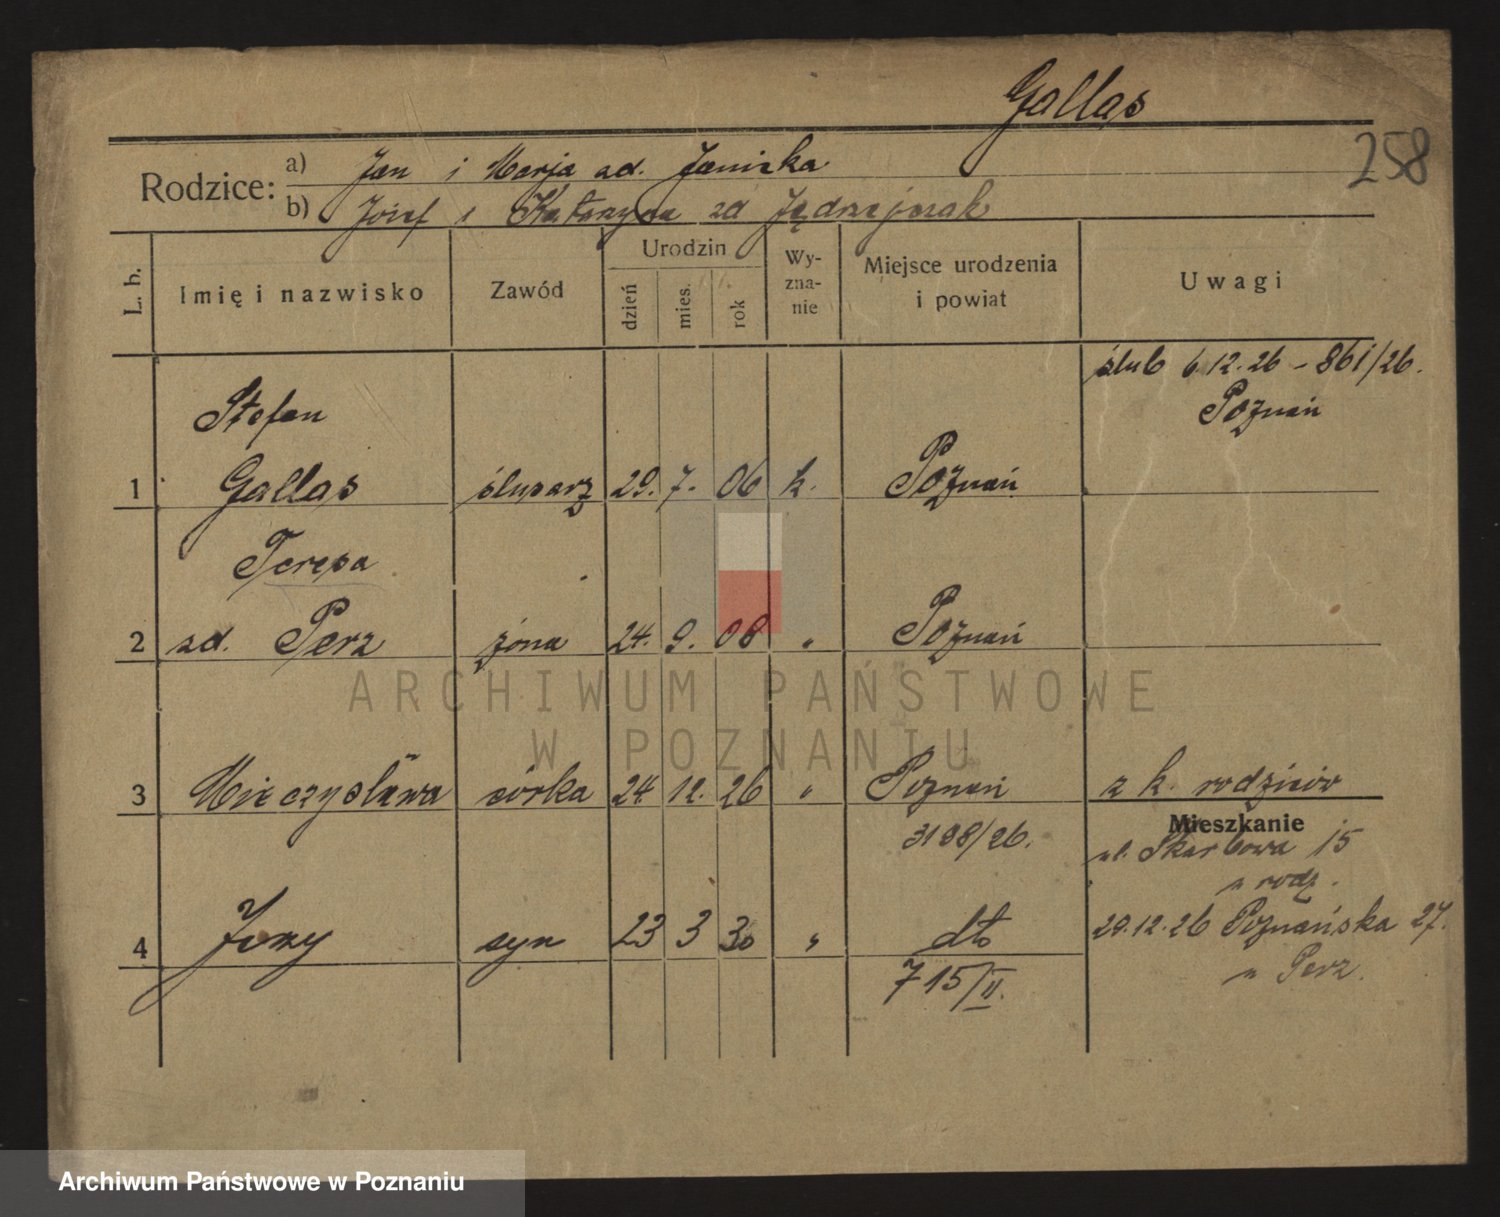 Gallas
258
Rodzice:
a) Jan i Marja zd. Janicka
b) Józef i Katarzyna zd Jędrzejczak
L. b.
Imię i nazwisko
Zawód
Urodzin
dzień
mies.
rok
Wy-
zna-
nie
Miejsce urodzenia
i powiat
Uwagi
ślub 6.12.26 - 861/26.
Poznań
Stefan
1 Gallas ślusarz 29. 7. 06 k. Poznań
Teresa
2 zd. Perz żona 24. 9. 08 " Poznań
3 Mieczysława córka 24. 12. 26 " Poznań z k. rodziców
3198/26.
Mieszkanie
ul. Skarbowa 15
u rodz.
4 Jerzy syn 23 3 30 " dto
29.12.26 Poznańska 27.
715/II.
u Perz.
ARCHIWUM PAŃSTWOWE
W POZNANIU
Archiwum Państwowe w Poznaniu